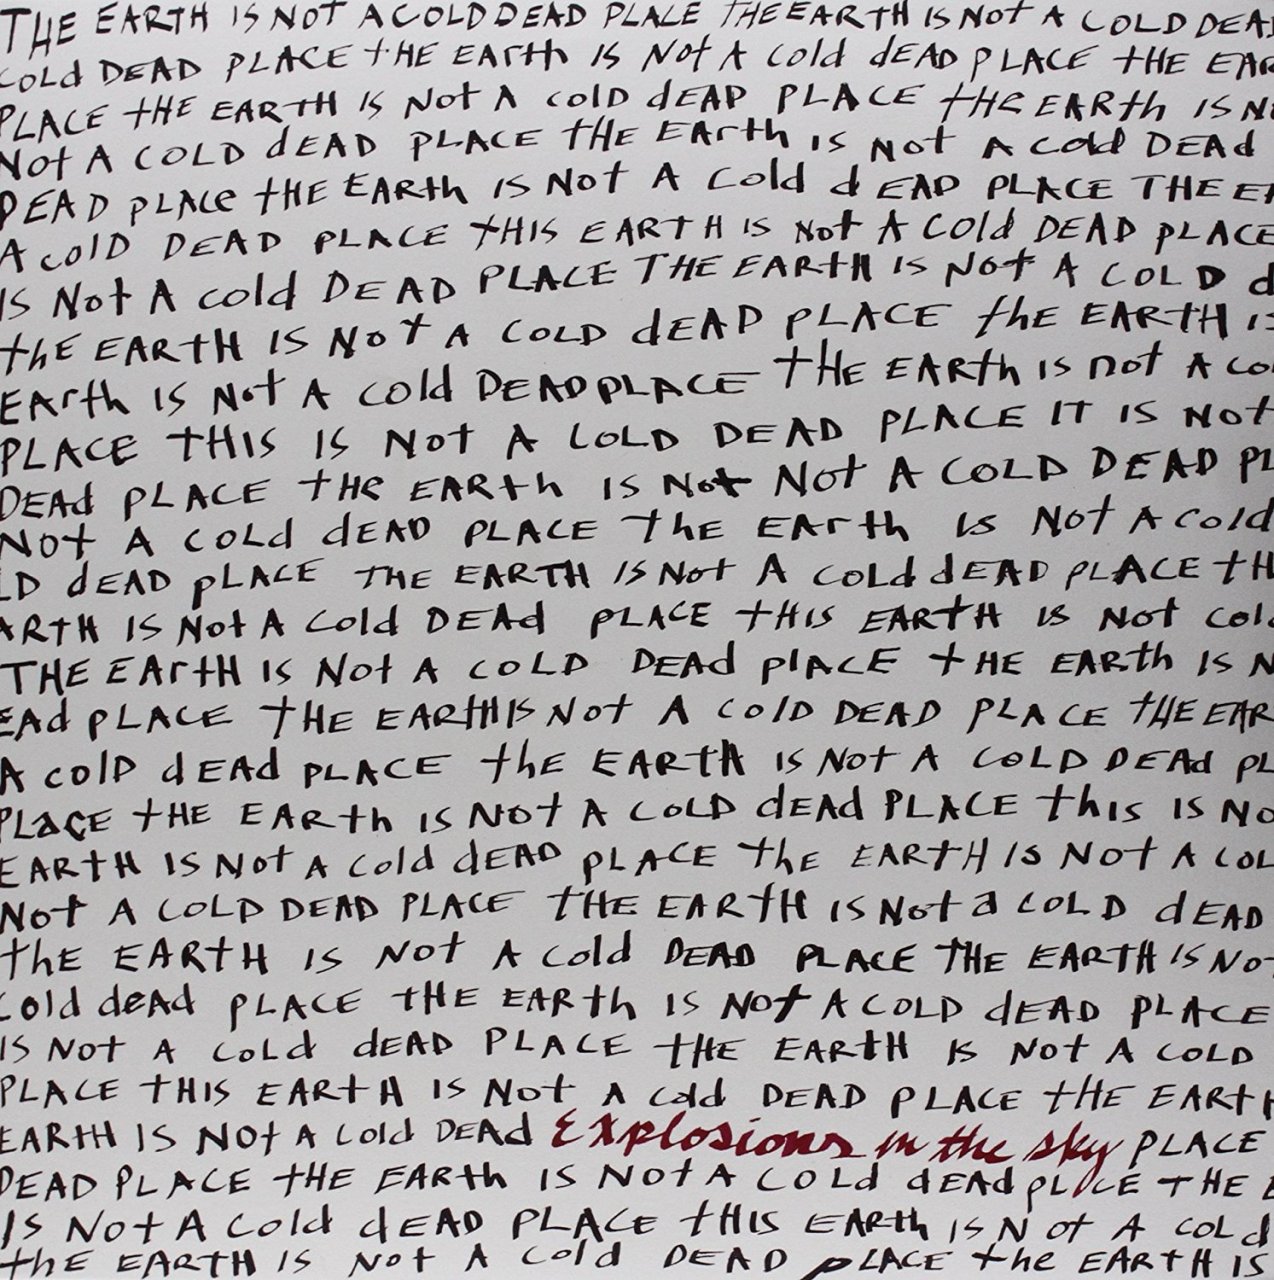 THE EARTH IS NOT A COLD DEAD PLACE THE EARTH IS NOT A COLD DEAD
COLd DEAD PLACE tHE EARth IS NOt A Cold dEAD PLACE tHE EAR
PLACE tHE EARTH IS Not A cold dEAD PLACE tHe EARth IS N
NOt A COLD dEAD PLACE tHE EArth IS Not A Cold DEAd
DEAD PLACe tHE EARth IS Not A Cold dEAD PLACE THE E
A colD DEAD PLACE tHIS EARTH IS Not A Cold DEAD pLACE
IS Not A cold DEAD PLACE THE EARtH IS Not A COLD d
thE EARtH IS NOT A COLD dEAD PLACE thE EARTH IS
EArth IS Not A Cold DEAD PLACE tHE EARth IS not A Co
PLACE tHIS IS Not A COLD DEAD PLACE IT IS Not
DEAd PLACE tHe EARth IS Not Not A COLD DEAD PL
NOt A COLd dEAD PLACE thE EArth Is Not A Cold
LD dEAD pLACE THE EARTH IS Not A Cold dEAD PLACE tH
ARTH IS Not A Cold DEAd PLACE tHIS EARtH IS Not Col
THE EArtH IS Not A COLD DEAd plACE tHE EARth IS N
EAd PLACE THE EARtH IS Not A ColD DEAD PLACE tHE EAR
A colD dEAd PLACE thE EARTH IS Not A CoLD DEAd pL
PLaCE tHE EARth IS Not A COLD dEAd PLACE thIs IS No
EARTH IS Not A Cold dEAD pLACE thE EARTH IS NOt A COL
Not A COLD DEAD PLACE tHE EARtH IS Not a COLD dEAD
thE EARTH IS NOt A Cold DEAD PLACE THE EARTH IS No
Cold deAd PLACE tHE EARth IS NOT A COLD dEAD PLACE
IS NOt A COLd dEAD PLACE tHE EARtH IS NOt A COLD
PLACE tHIS EARtH IS Not A Cold DEAD PLACE tHE EARt
EARtH IS NOt A Cold DEAd Explosions in the sky PLACE
DEAD PLACE tHE EARth IS NOt A COLd dEAd pLACE THE E
IS NOt A Cold dEAD PLACE tHIS EARth IS Not A COLd
thE EARTH IS Not A Cold DEAD pLACE the EARtH IS